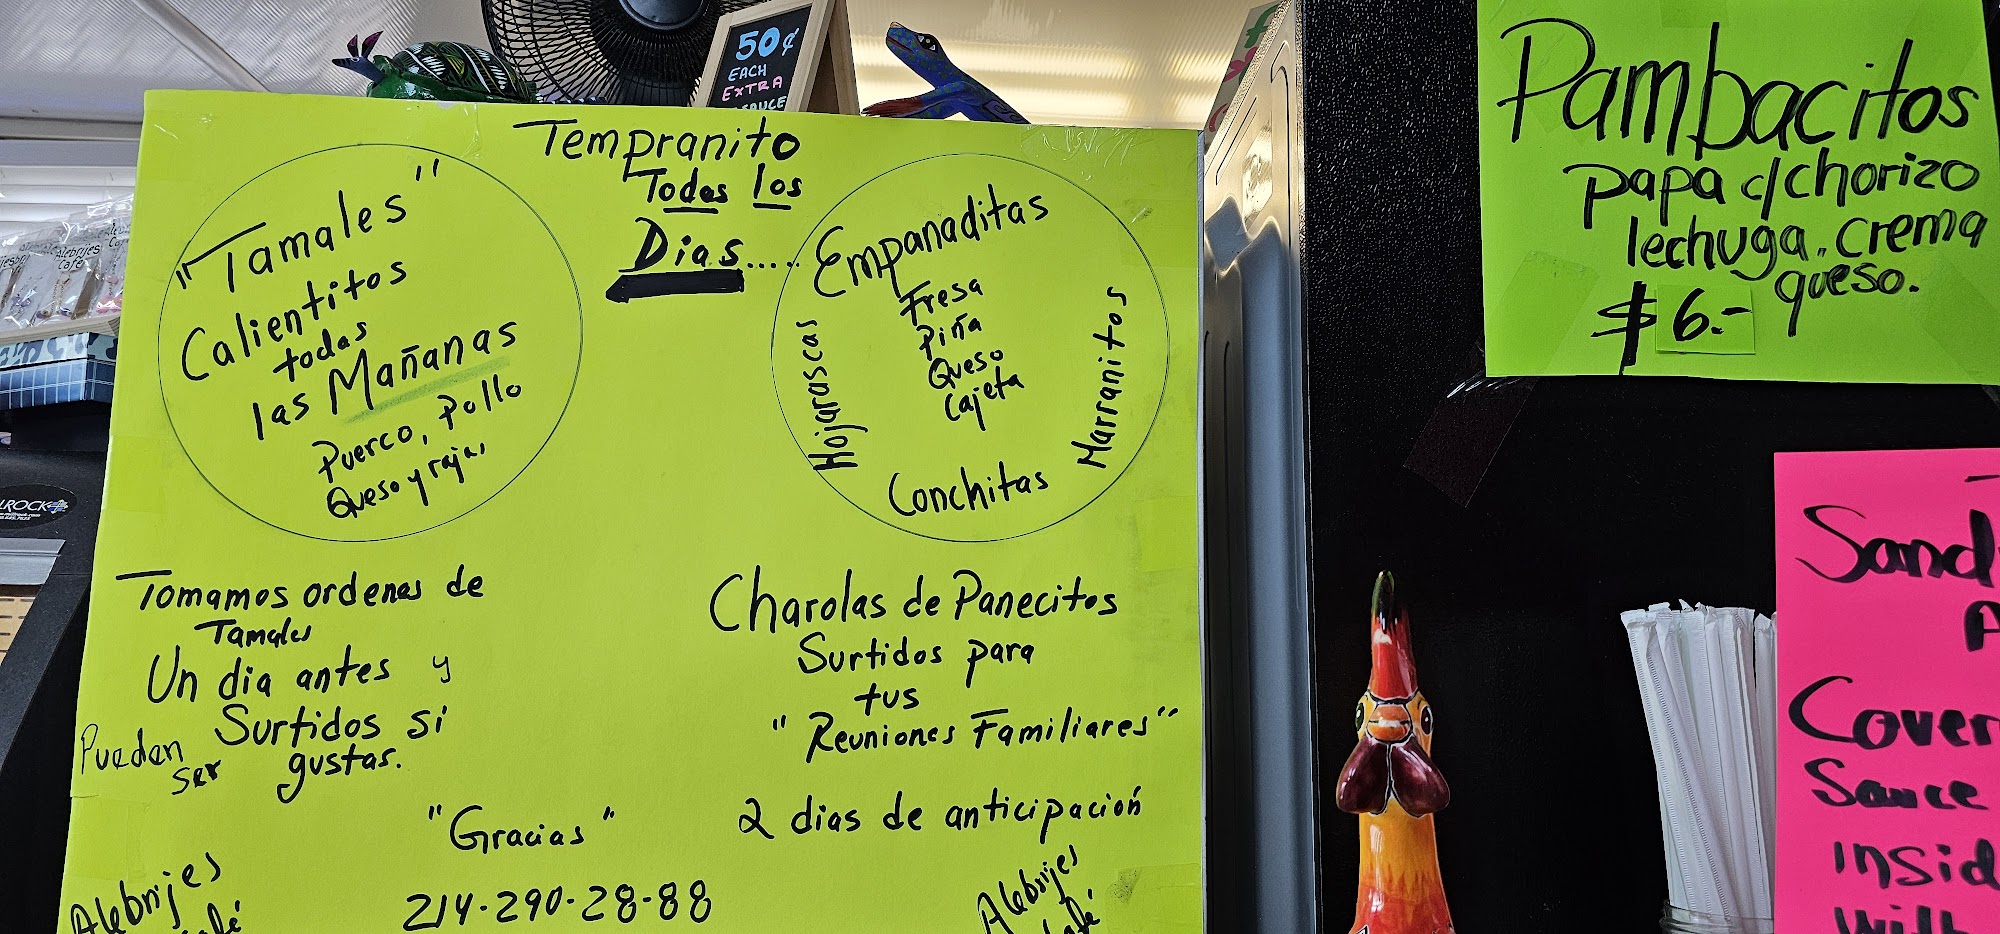 50¢
EACH
EXTRA
SAUCE
Tempranito
Todos los
Dias.....
"Tamales"
Calientitos
todas
las Mañanas
Puerco, Pollo
Queso y rajas
Empanaditas
Fresa
Piña
Queso
Cajeta
Hojarascas
Marranitos
Conchitas
Tomamos ordenes de
Tamales
Un dia antes y
Pueden ser Surtidos si
gustas.
Charolas de Panecitos
Surtidos para
tus
"Reuniones Familiares"
2 dias de anticipación
"Gracias"
214-290-28-88
Alebrijes
Café
Alebrijes
Café
Pambacitos
papa c/chorizo
lechuga, crema
queso.
$6.-
Sand
Cover
Sauce
insid
with
Alebrijes
Café